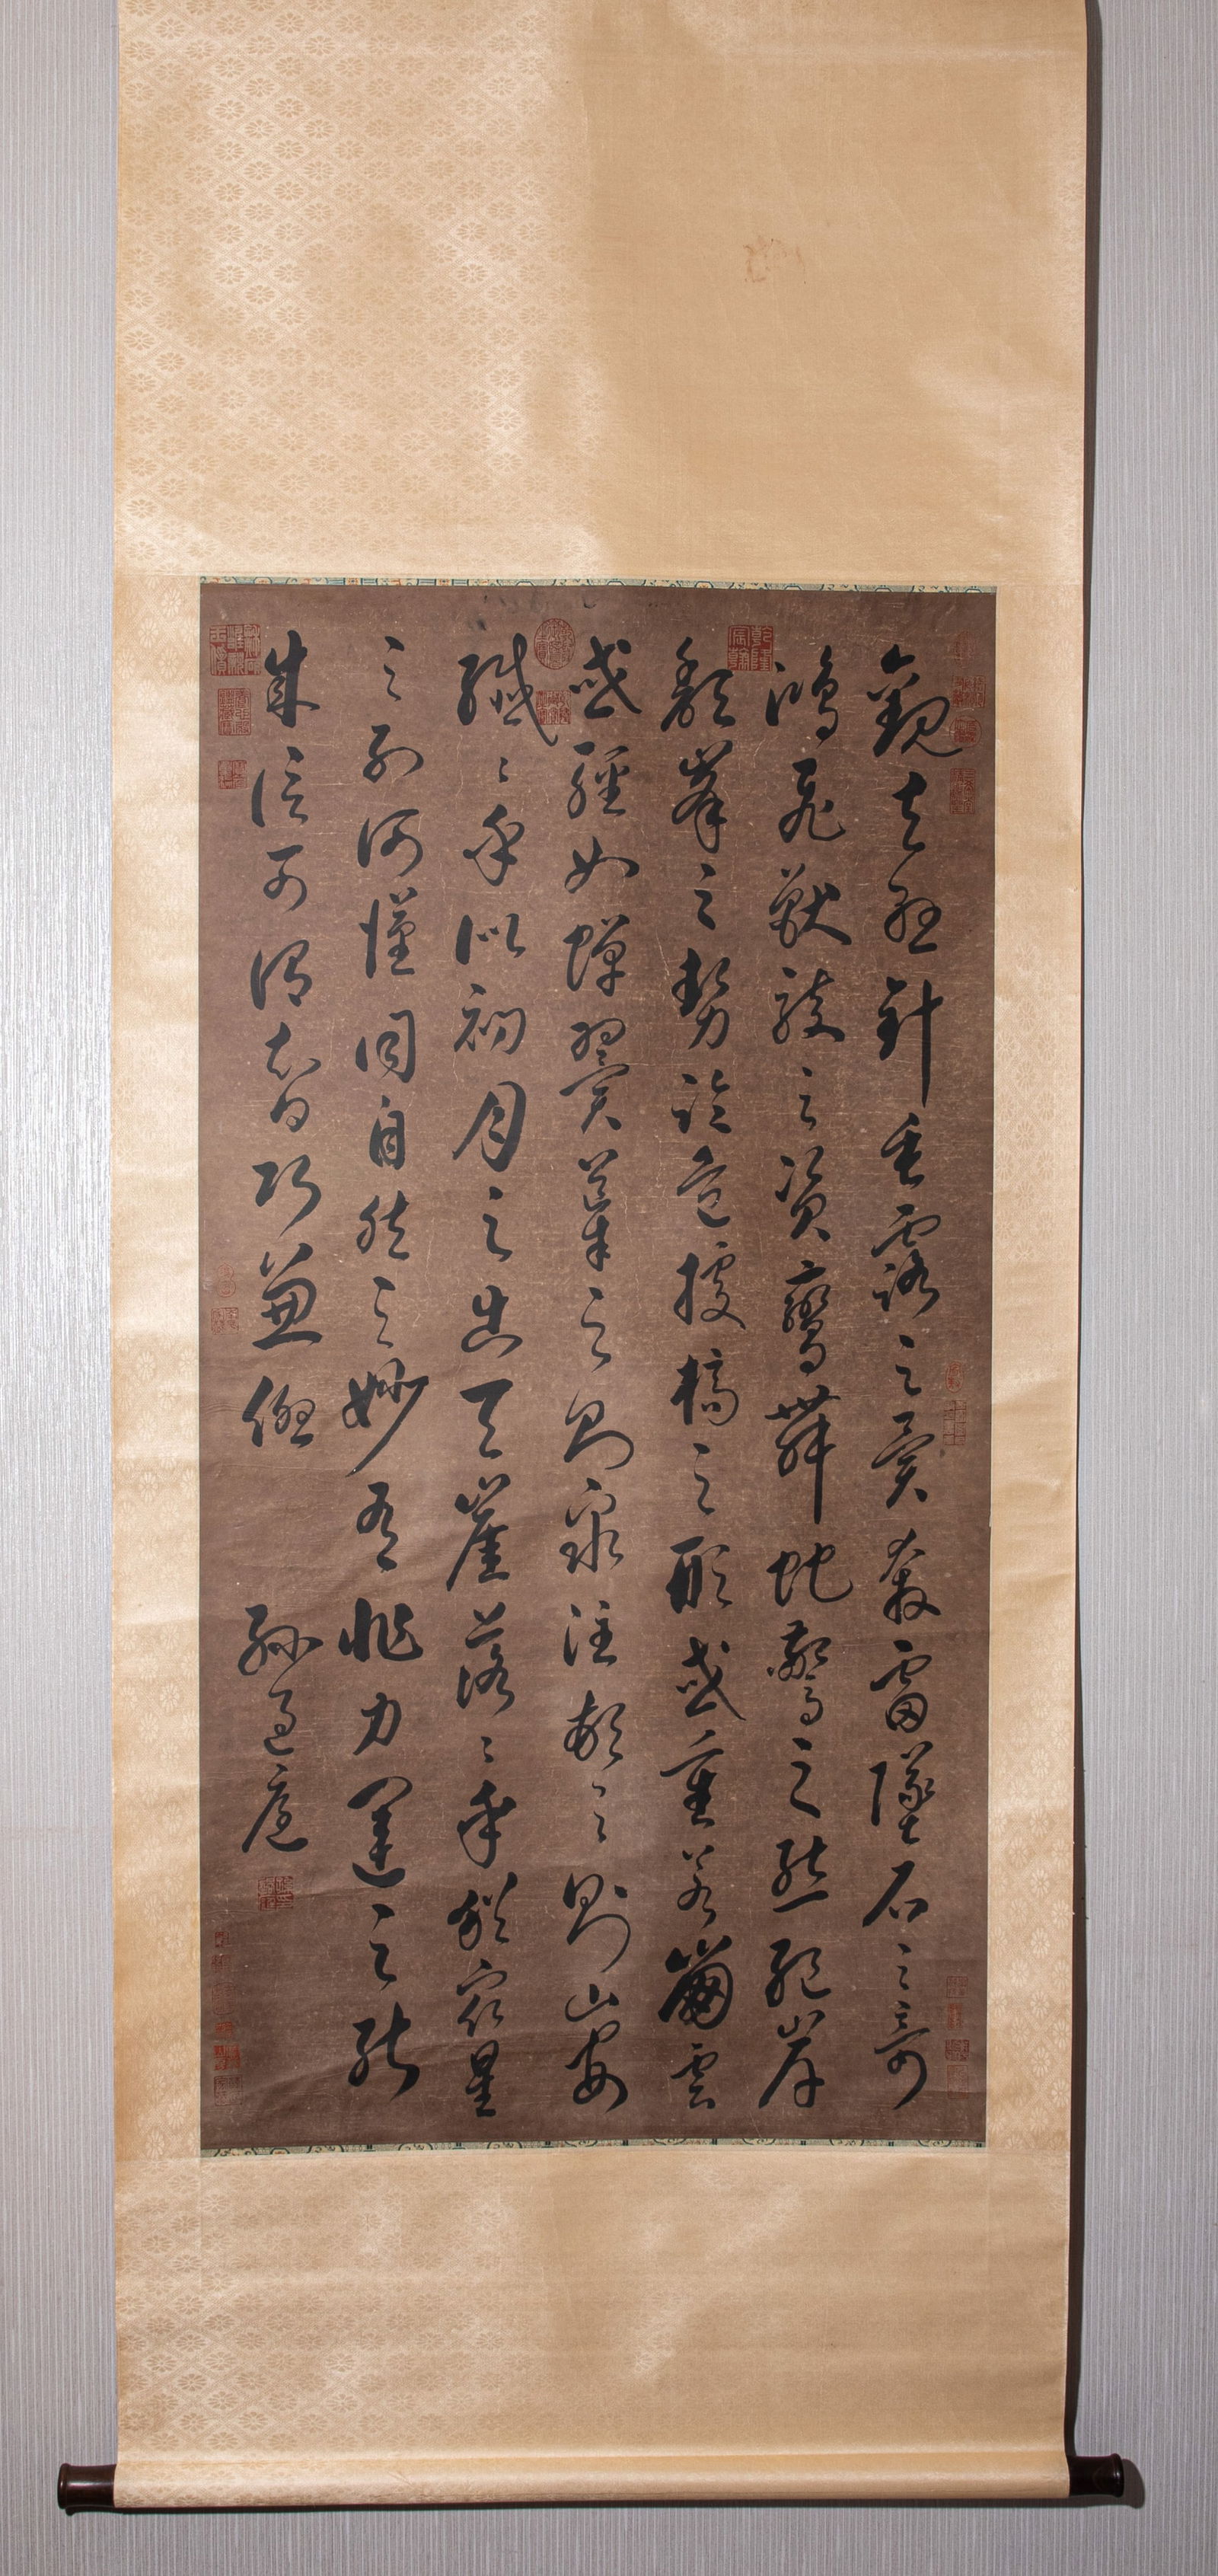 觀夫懸針垂露之異奔雷墜石之奇
鴻飛獸駭之資鸞舞蛇驚之態絕岸
頹峯之勢臨危據槁之形或重若崩雲
或輕如蟬翼導之則泉注頓之則山安
纖〻乎似初月之出天崖落〻乎猶眾星
之列河漢同自然之妙有非力運之能
成信可謂智巧兼優
孫過庭